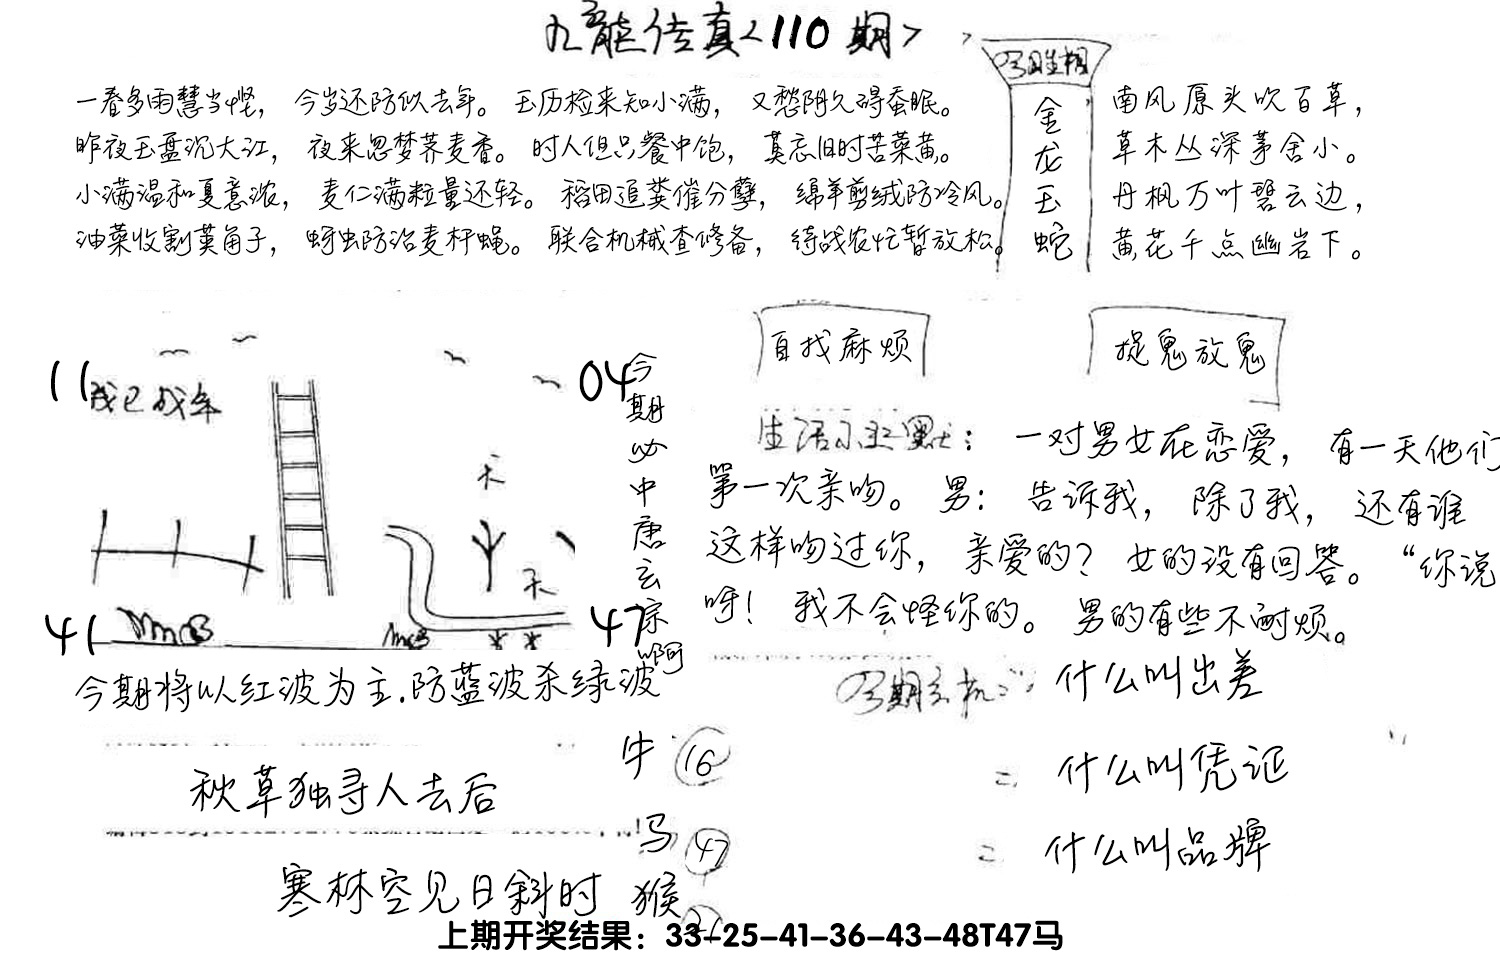 九龙传真<110期>
一春多雨慧当悭，今岁还防似去年。玉历检来知小满，又愁阴久碍蚕眠。
昨夜玉盘沉大江，夜来忽梦荞麦香。时人但只餐中饱，莫忘旧时苦菜黄。
小满温和夏意浓，麦仁满粒量还轻。稻田追粪催分孽，绵羊剪绒防冷风。
油菜收割荚角子，蚜虫防治麦杆蝇。联合机械查修备，待战农忙暂放松。
金龙玉蛇
南风原头吹百草，
草木丛深茅舍小。
丹枫万叶碧云边，
黄花千点幽岩下。
11
04
41
47
今期必中唐玄宗啊
今期将以红波为主.防蓝波杀绿波
自找麻烦
捉鬼放鬼
一对男女在恋爱，有一天他们
第一次亲吻。男：告诉我，除了我，还有谁
这样吻过你，亲爱的？女的没有回答。“你说
呀！我不会怪你的。男的有些不耐烦。
什么叫出差
二 什么叫凭证
二 什么叫品牌
秋草独寻人去后
寒林空见日斜时
牛 16
马 47
猴
上期开奖结果：33-25-41-36-43-48T47马